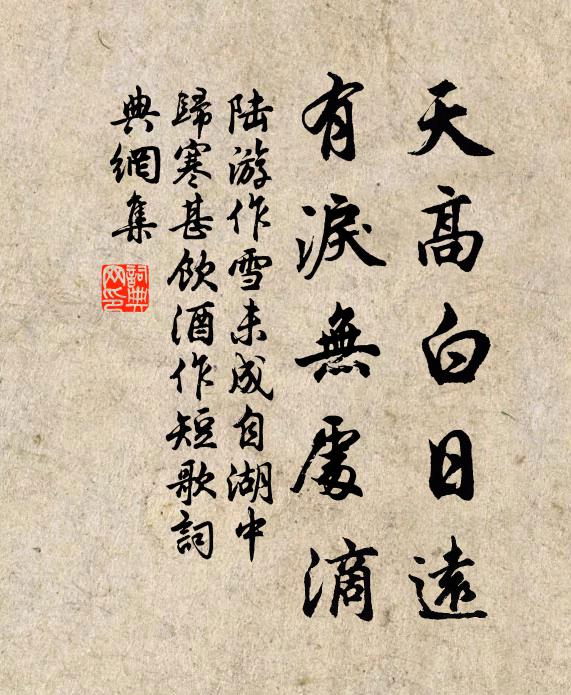 天高白日遠
有淚無處滴
陸游作雪未成自湖中
歸寒甚飲酒作短歌詞
典網集
詞典
网印